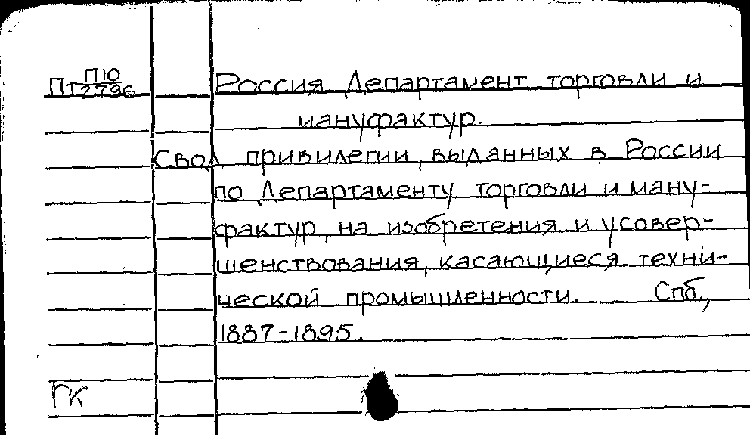 ПЮ
Пт2796
Россия Департамент торговли и
мануфактур.
Свод привилегий, выданных в России
по Департаменту торговли и ману-
фактур, на изобретения и усовер-
шенствования, касающиеся техни-
ческой промышленности. Спб.,
1887-1895.
ГК